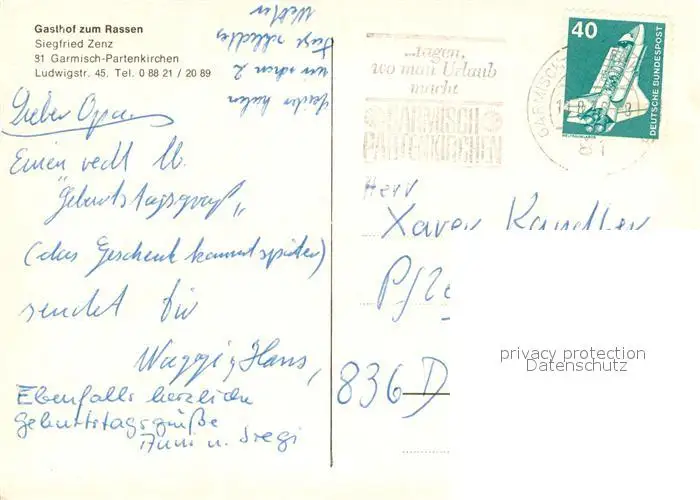 Gasthof zum Rassen
Siegfried Zenz
81 Garmisch-Partenkirchen
Ludwigstr. 45, Tel. 0 88 21 / 20 89
leider haben
wir schon 2
Tage schlechtes
Wetter
Lieber Opa
Einen recht lb.
"Geburtstagsgruß"
(das Geschenk kommt später)
sendet Dir
Hans,
Ebenfalls herzliche
Geburtstagsgrüße
u. Siegi
...tagen,
wo man Urlaub
macht
GARMISCH
PARTENKIRCHEN
GARMISCH
81
40
DEUTSCHE BUNDESPOST
Herr
Xaver
836 D
privacy protection
Datenschutz